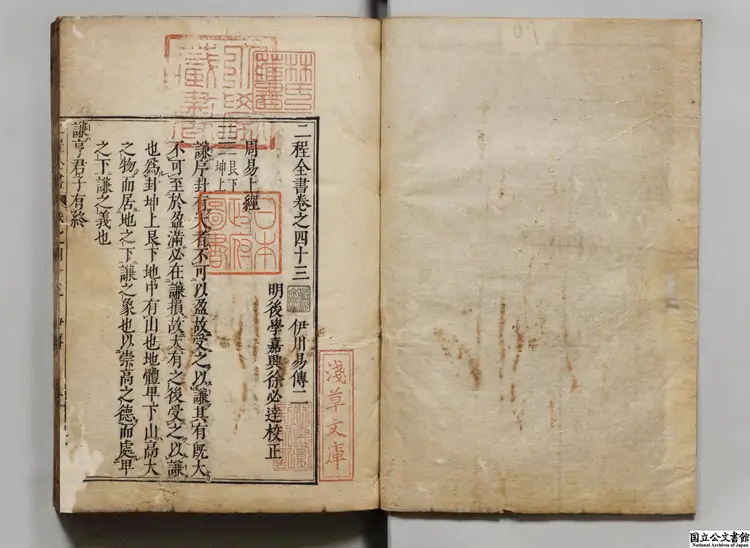 二程全書卷之四十三 伊川易傳二
明後學嘉興徐必達校正
周易上經
艮下
坤上
謙序卦有大者不可以盈故受之以謙其有旣大
不可至於盈滿必在謙損故大有之後受之以謙
也爲卦坤上艮下地中有山也地體卑下山高大
之物而居地之下謙之象也以崇高之德而處卑
之下謙之義也
謙亨君子有終
淺草文庫
日本
政府
圖書
林氏
藏書
国立公文書館
National Archives of Japan